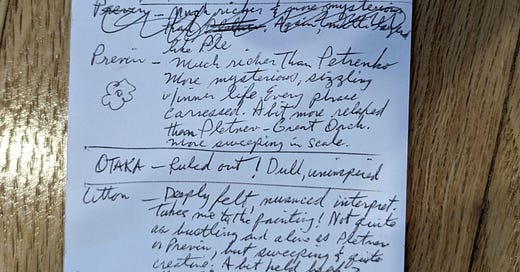 Previn - Much richer & more mysterious
than Pletnev. Again, much
like Ple
Previn - Much richer Than Petrenko
More mysterious, sizzling
w/inner life Every phrase
carressed. A bit more relaxed
than Pletnev - Great Orch.
More sweeping in scale.
OTAKA - Ruled out! Dull, uninspired
Litton - Deeply felt, nuanced interpret
Takes me to the painting! Not quite
as bustling and alive as Pletnev
or Previn, but sweeping & quite
creative. A bit held back